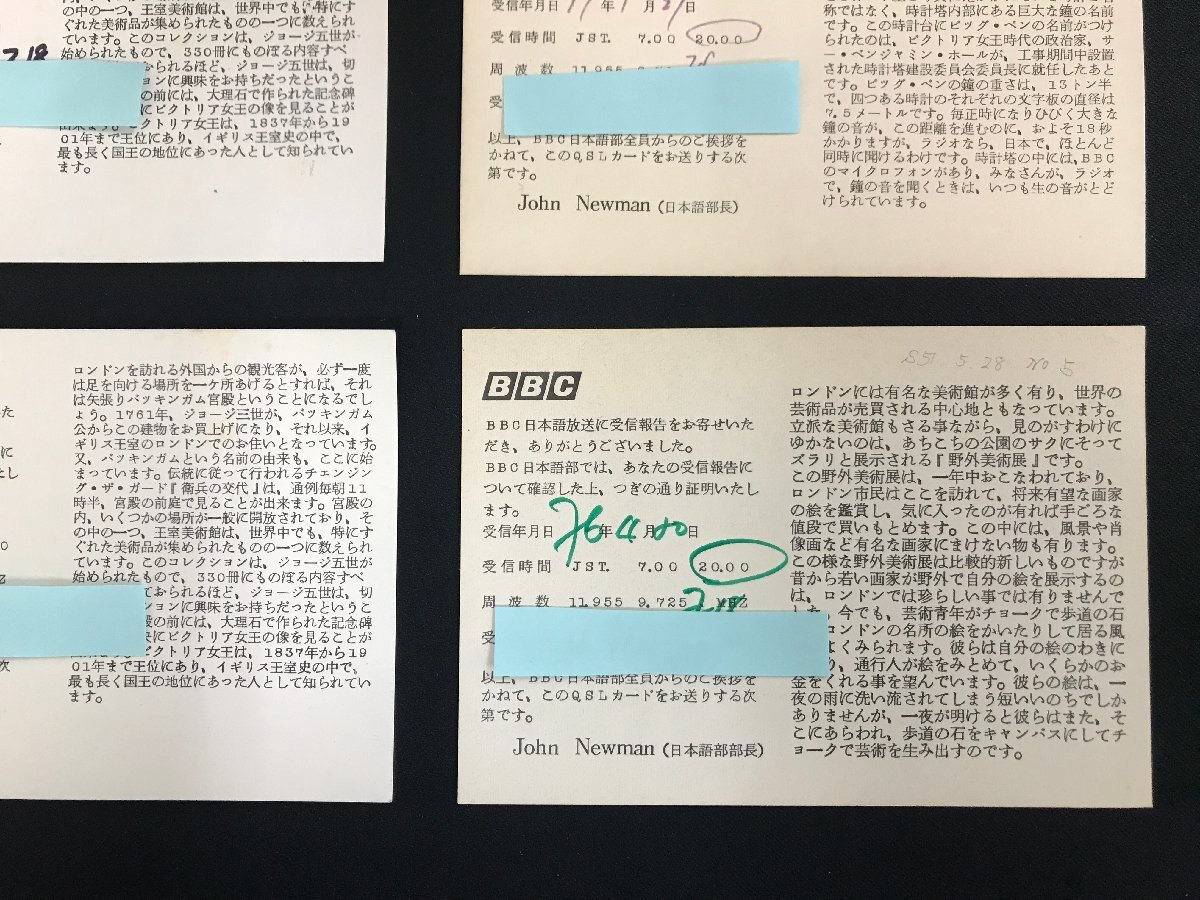 の中の一つ、王室美術館は、世界中でも、特にす
ぐれた美術品が集められたものの一つに数えられ
ています。このコレクションは、ジョージ五世が
始められたもので、330冊にものぼる内容すべ
おられるほど、ジョージ五世は、切
ションに興味をお持ちだったというこ
の前には、大理石で作られた記念碑
にビクトリア女王の像を見ることが
ビクトリア女王は、1837年から19
01年まで王位にあり、イギリス王室史の中で、
最も長く国王の地位にあった人として知られてい
ます。
受信年月日 年 月 日
受信時間 JST. 7.00 20.00
周波数 11.955
以上、BBC日本語部全員からのご挨拶を
かねて、このQSLカードをお送りする次
第です。
John Newman (日本語部長)
称ではなく、時計塔内部にある巨大な鐘の名前
です。この時計台にビッグ・ベンの名前がつけ
られたのは、ビクトリア女王時代の政治家、サ
ー・ベンジャミン・ホールが、工事期間中設置
された時計塔建設委員会委員長に就任したあと
です。ビッグ・ベンの鐘の重さは、13トン半
で、四つある時計のそれぞれの文字板の直径は
7.5メートルです。毎正時になりひびく大きな
鐘の音が、この距離を進むのに、およそ18秒
かかりますが、ラジオなら、日本で、ほとんど
同時に聞けるわけです。時計塔の中には、BBC
のマイクロフォンがあり、みなさんが、ラジオ
で、鐘の音を聞くときは、いつも生の音がとど
けられています。
ロンドンを訪れる外国からの観光客が、必ず一度
は足を向ける場所を一ケ所あげるとすれば、それ
は矢張りバッキンガム宮殿ということになるでし
ょう。1761年、ジョージ三世が、バッキンガム
公からこの建物をお買上げになり、それ以来、イ
ギリス王室のロンドンでのお住いとなっています。
又、バッキンガムという名前の由来も、ここに始
まっています。伝統に従って行われるチェンジン
グ・ザ・ガード『衛兵の交代』は、通例毎朝11
時半、宮殿の前庭で見ることが出来ます。宮殿の
内、いくつかの場所が一般に開放されており、そ
の中の一つ、王室美術館は、世界中でも、特にす
ぐれた美術品が集められたものの一つに数えられ
ています。このコレクションは、ジョージ五世が
始められたもので、330冊にものぼる内容すべ
ておられるほど、ジョージ五世は、切
ションに興味をお持ちだったというこ
の前には、大理石で作られた記念碑
にビクトリア女王の像を見ることが
ビクトリア女王は、1837年から19
01年まで王位にあり、イギリス王室史の中で、
最も長く国王の地位にあった人として知られてい
ます。
S51 5 28 No 5
BBC
BBC日本語放送に受信報告をお寄せいた
だき、ありがとうございました。
BBC日本語部では、あなたの受信報告に
ついて確認した上、つぎの通り証明いたし
ます。
受信年月日 76年4月 日
受信時間 JST. 7.00 20.00
周波数 11.955 9.725
以上、BBC日本語部全員からのご挨拶を
かねて、このQSLカードをお送りする次
第です。
John Newman (日本語部部長)
ロンドンには有名な美術館が多く有り、世界の
芸術品が売買される中心地ともなっています。
立派な美術館もさる事ながら、見のがすわけに
ゆかないのは、あちこちの公園のサクにそって
ズラリと展示される『野外美術展』です。
この野外美術展は、一年中おこなわれており、
ロンドン市民はここを訪れて、将来有望な画家
の絵を鑑賞し、気に入ったのが有れば手ごろな
値段で買いもとめます。この中には、風景や肖
像画など有名な画家にまけない物も有ります。
この様な野外美術展は比較的新しいものですが
昔から若い画家が野外で自分の絵を展示するの
は、ロンドンでは珍らしい事では有りませんで
した。今でも、芸術青年がチョークで歩道の石
ロンドンの名所の絵をかいたりして居る風
よくみられます。彼らは自分の絵のわきに
り、通行人が絵をみとめて、いくらかのお
金をくれる事を望んでいます。彼らの絵は、一
夜の雨に洗い流されてしまう短いいのちでしか
ありませんが、一夜が明けると彼らはまた、そ
こにあらわれ、歩道の石をキャンバスにしてチ
ョークで芸術を生み出すのです。